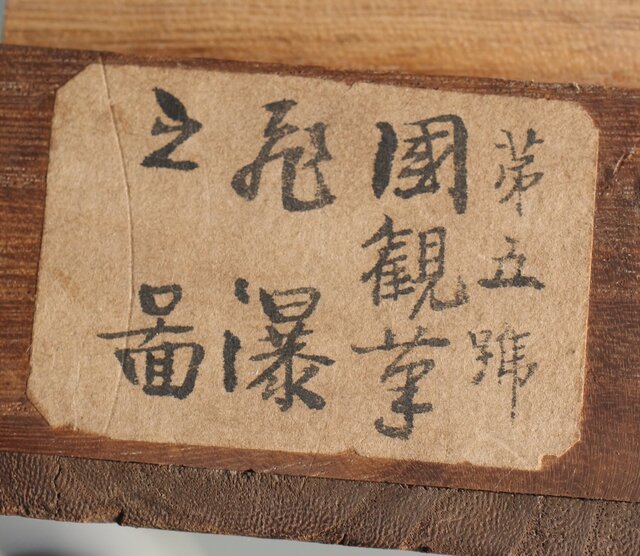 第五號
國觀筆
飛瀑
之圖